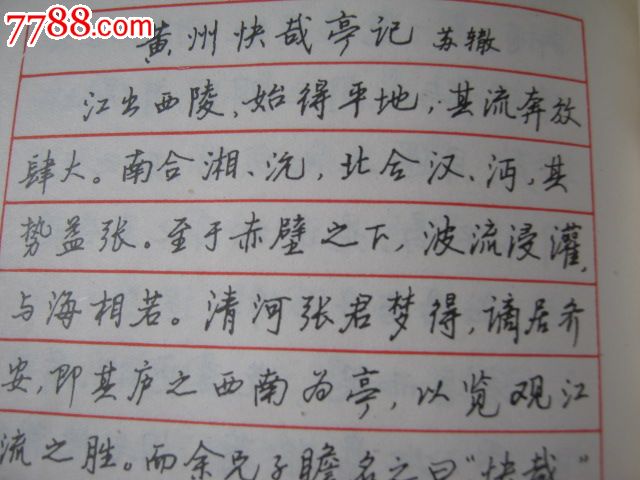 7788.com
黄州快哉亭记 苏辙
江出西陵、始得平地,其流奔放
肆大。南合湘、沅,北合汉、沔,其
势益张。至于赤壁之下,波流浸灌,
与海相若。清河张君梦得,谪居齐
安,即其庐之西南为亭,以览观江
流之胜。而余兄子瞻名之曰“快哉”